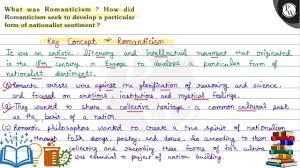 What was Romanticism ? How did
Romanticism seek to develop a particular
form of nationalist sentiment ?
Key Concept → Romanticism
It was an artistic, literary and intellectual movement that originated
in the 18th century in Europe to develop a particular form of
nationalist sentiments.
Romantic artists was against the glorification of reasoning and science
and focused on emotions, institutions and mystical feelings.
They wanted to share a collective heritage, a common cultural past
as the basis of a nation.
(c) Romantic philosophers wanted to create a true spirit of nationalism
through folk songs, poetry, and dance. According to them
collecting and recording these forms of folk culture
was essential to project of nation building.